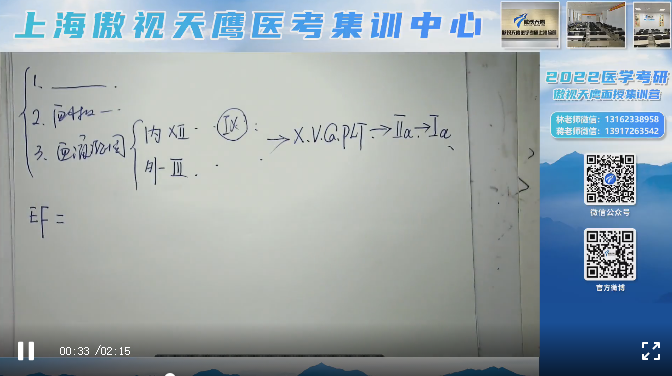 上海傲视天鹰医考集训中心
2022医学考研
傲视天鹰面授集训营
林老师微信：13162338958
蒋老师微信：13917263542
微信公众号
官方微博
1.
2. 血小板
3. 内 XII IX :
外 III
→ X.V.Ca.PLT → IIa → Ia
EF =
00:33 /02:15